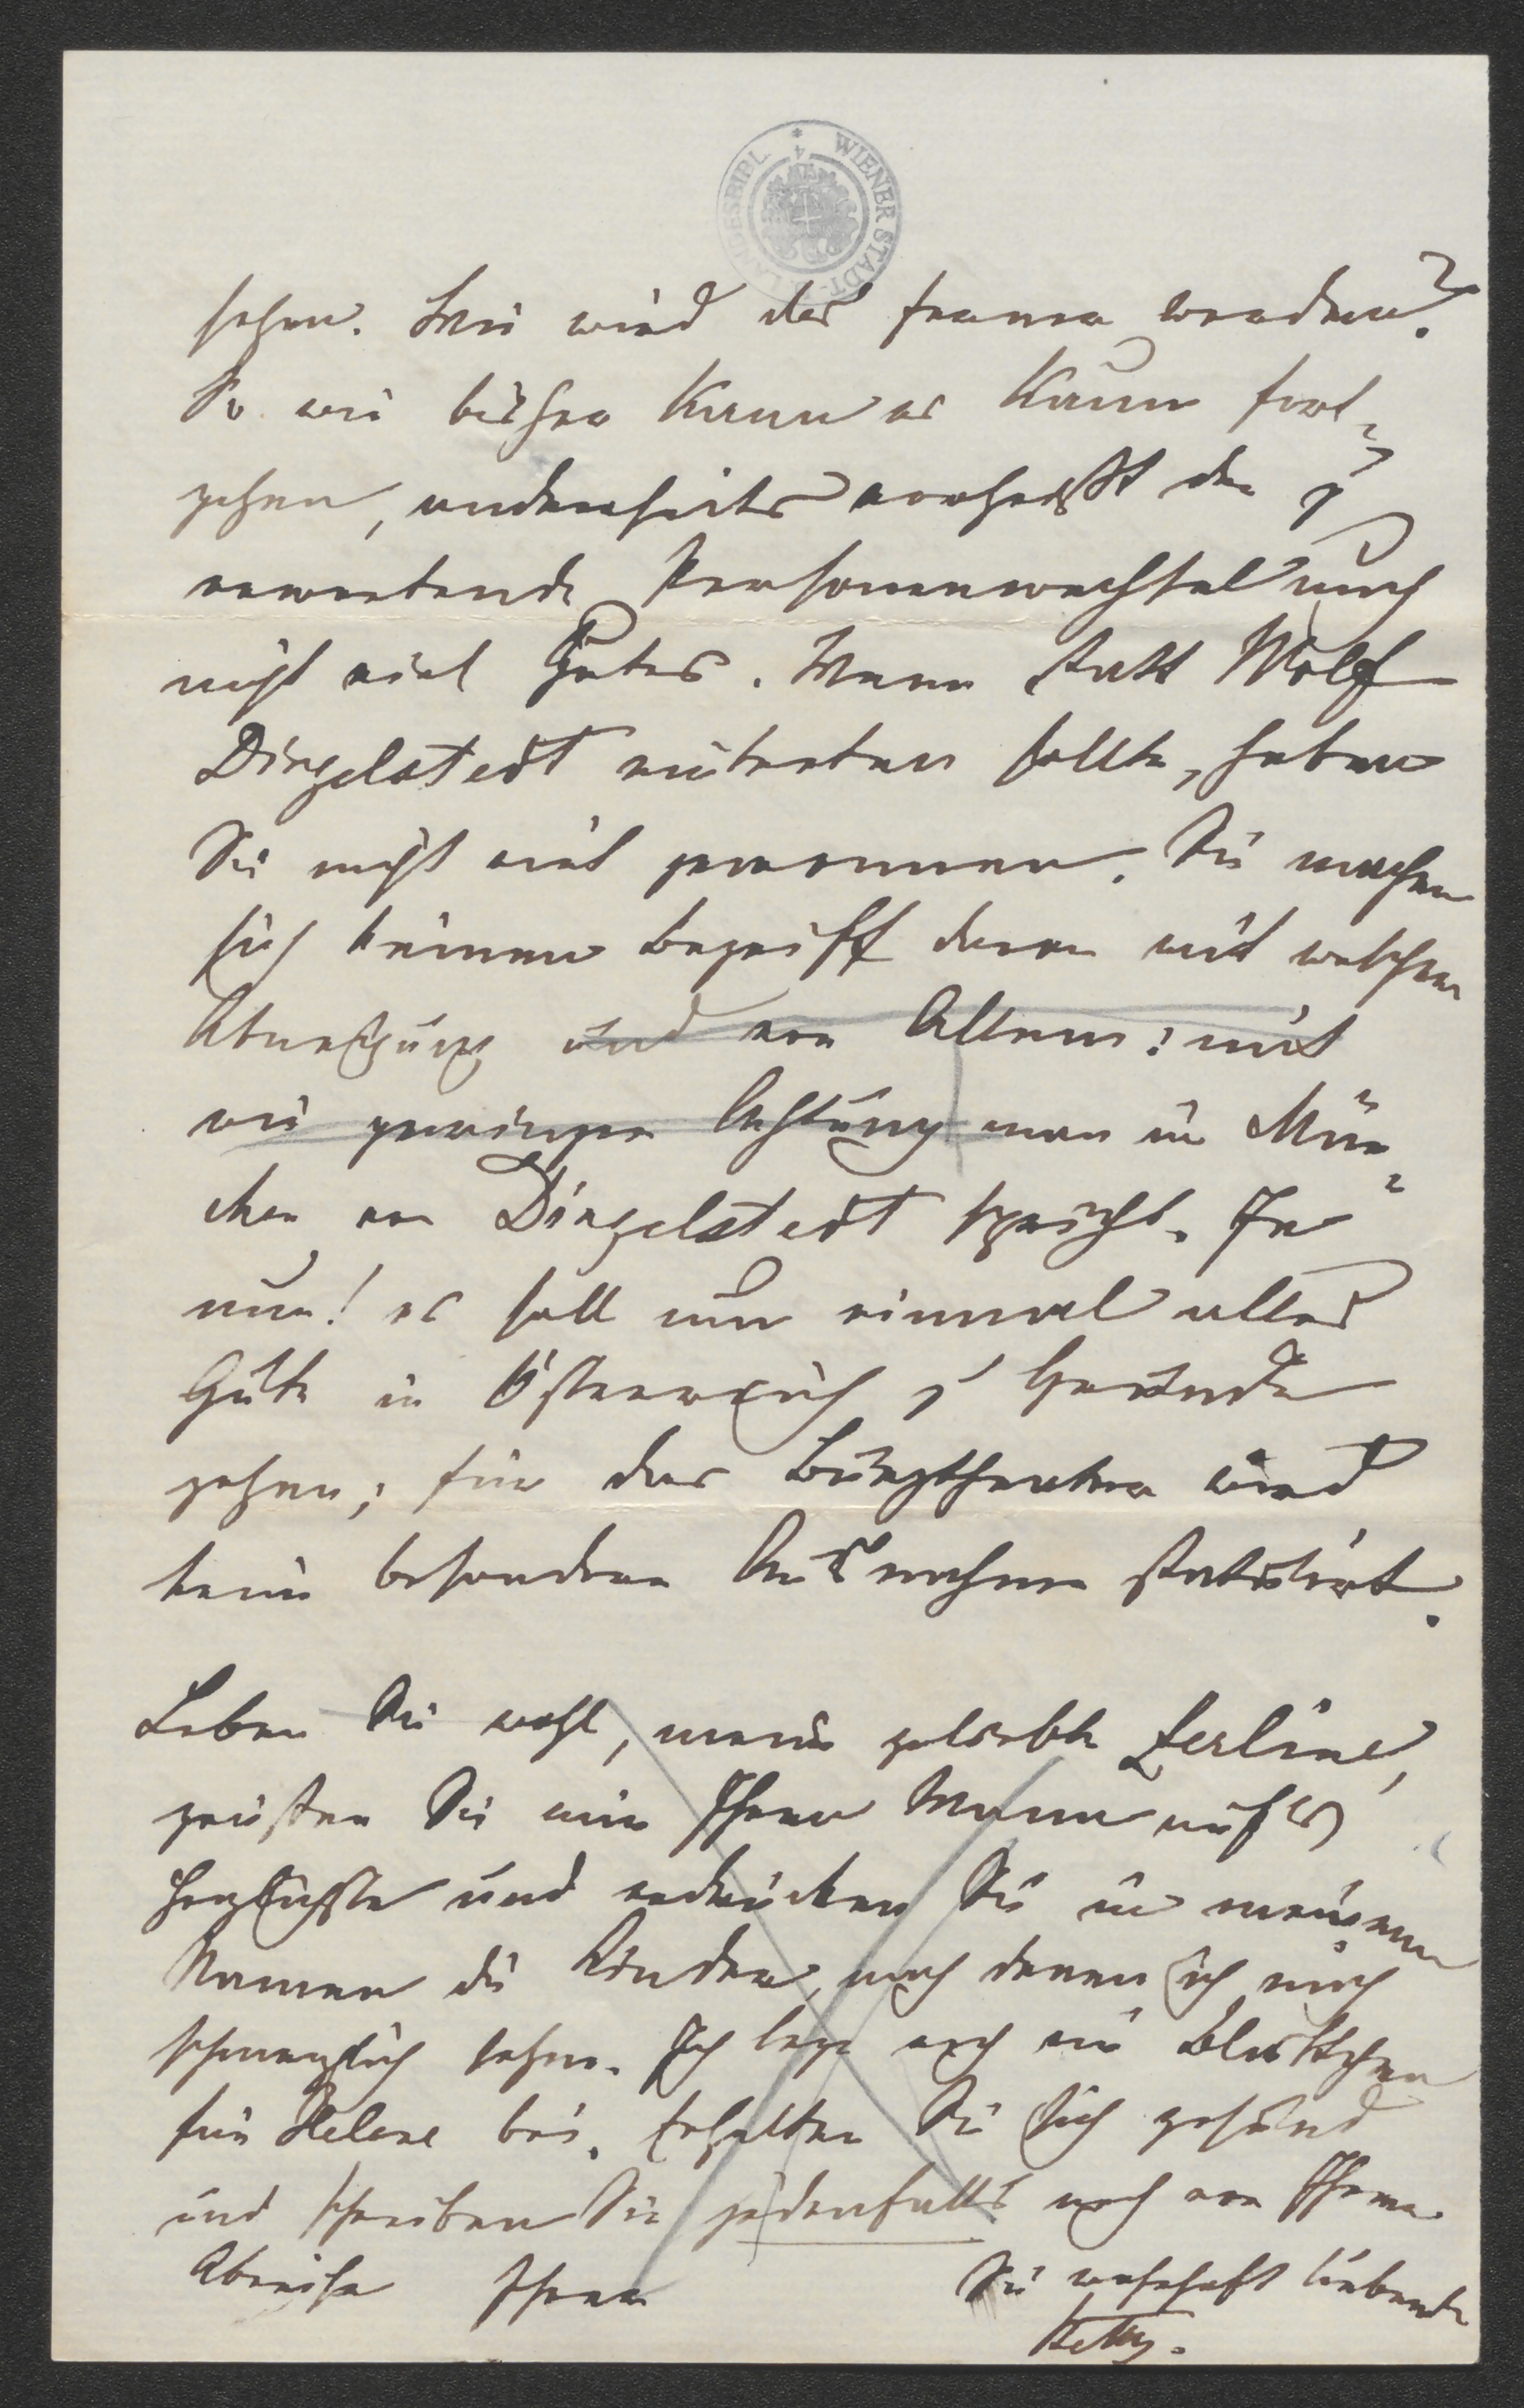 WIENER STADT- LANDESBIBL.
sehen. Wie wird das ferner werden?
So wie bisher kann es kaum fort-
gehen, anderseits verheißt der z
erwartende Personenwechsel auch
nicht viel Gutes. Wenn statt Wolf
Dingelstedt eintreten sollte, haben
Sie nicht viel gewonnen. Sie machen
sich keinen Begriff davon mit welcher
Abneigung und vor Allem: mit
wie geringer Achtung man in Mün-
chen von Dingelstedt spricht. Ja
nun! es soll nun einmal alles
Gute in Österreich z Grunde
gehen; für das Burgtheater wird
keine besondere Ausnahme statuirt.
Leben Sie wohl, meine geliebte Zerline,
grüßen Sie mir Ihren Mann auf's
herzlichste und erdrücken Sie in meinem
Namen die Kinder, nach denen ich mich
schmerzlich sehne. Ich lege noch ein Blättchen
für Helene bei. Erhalten Sie sich gesund
und schreiben Sie jedenfalls noch vor Ihrer
Abreise Ihrer
Sie wahrhaft liebenden
Betty.